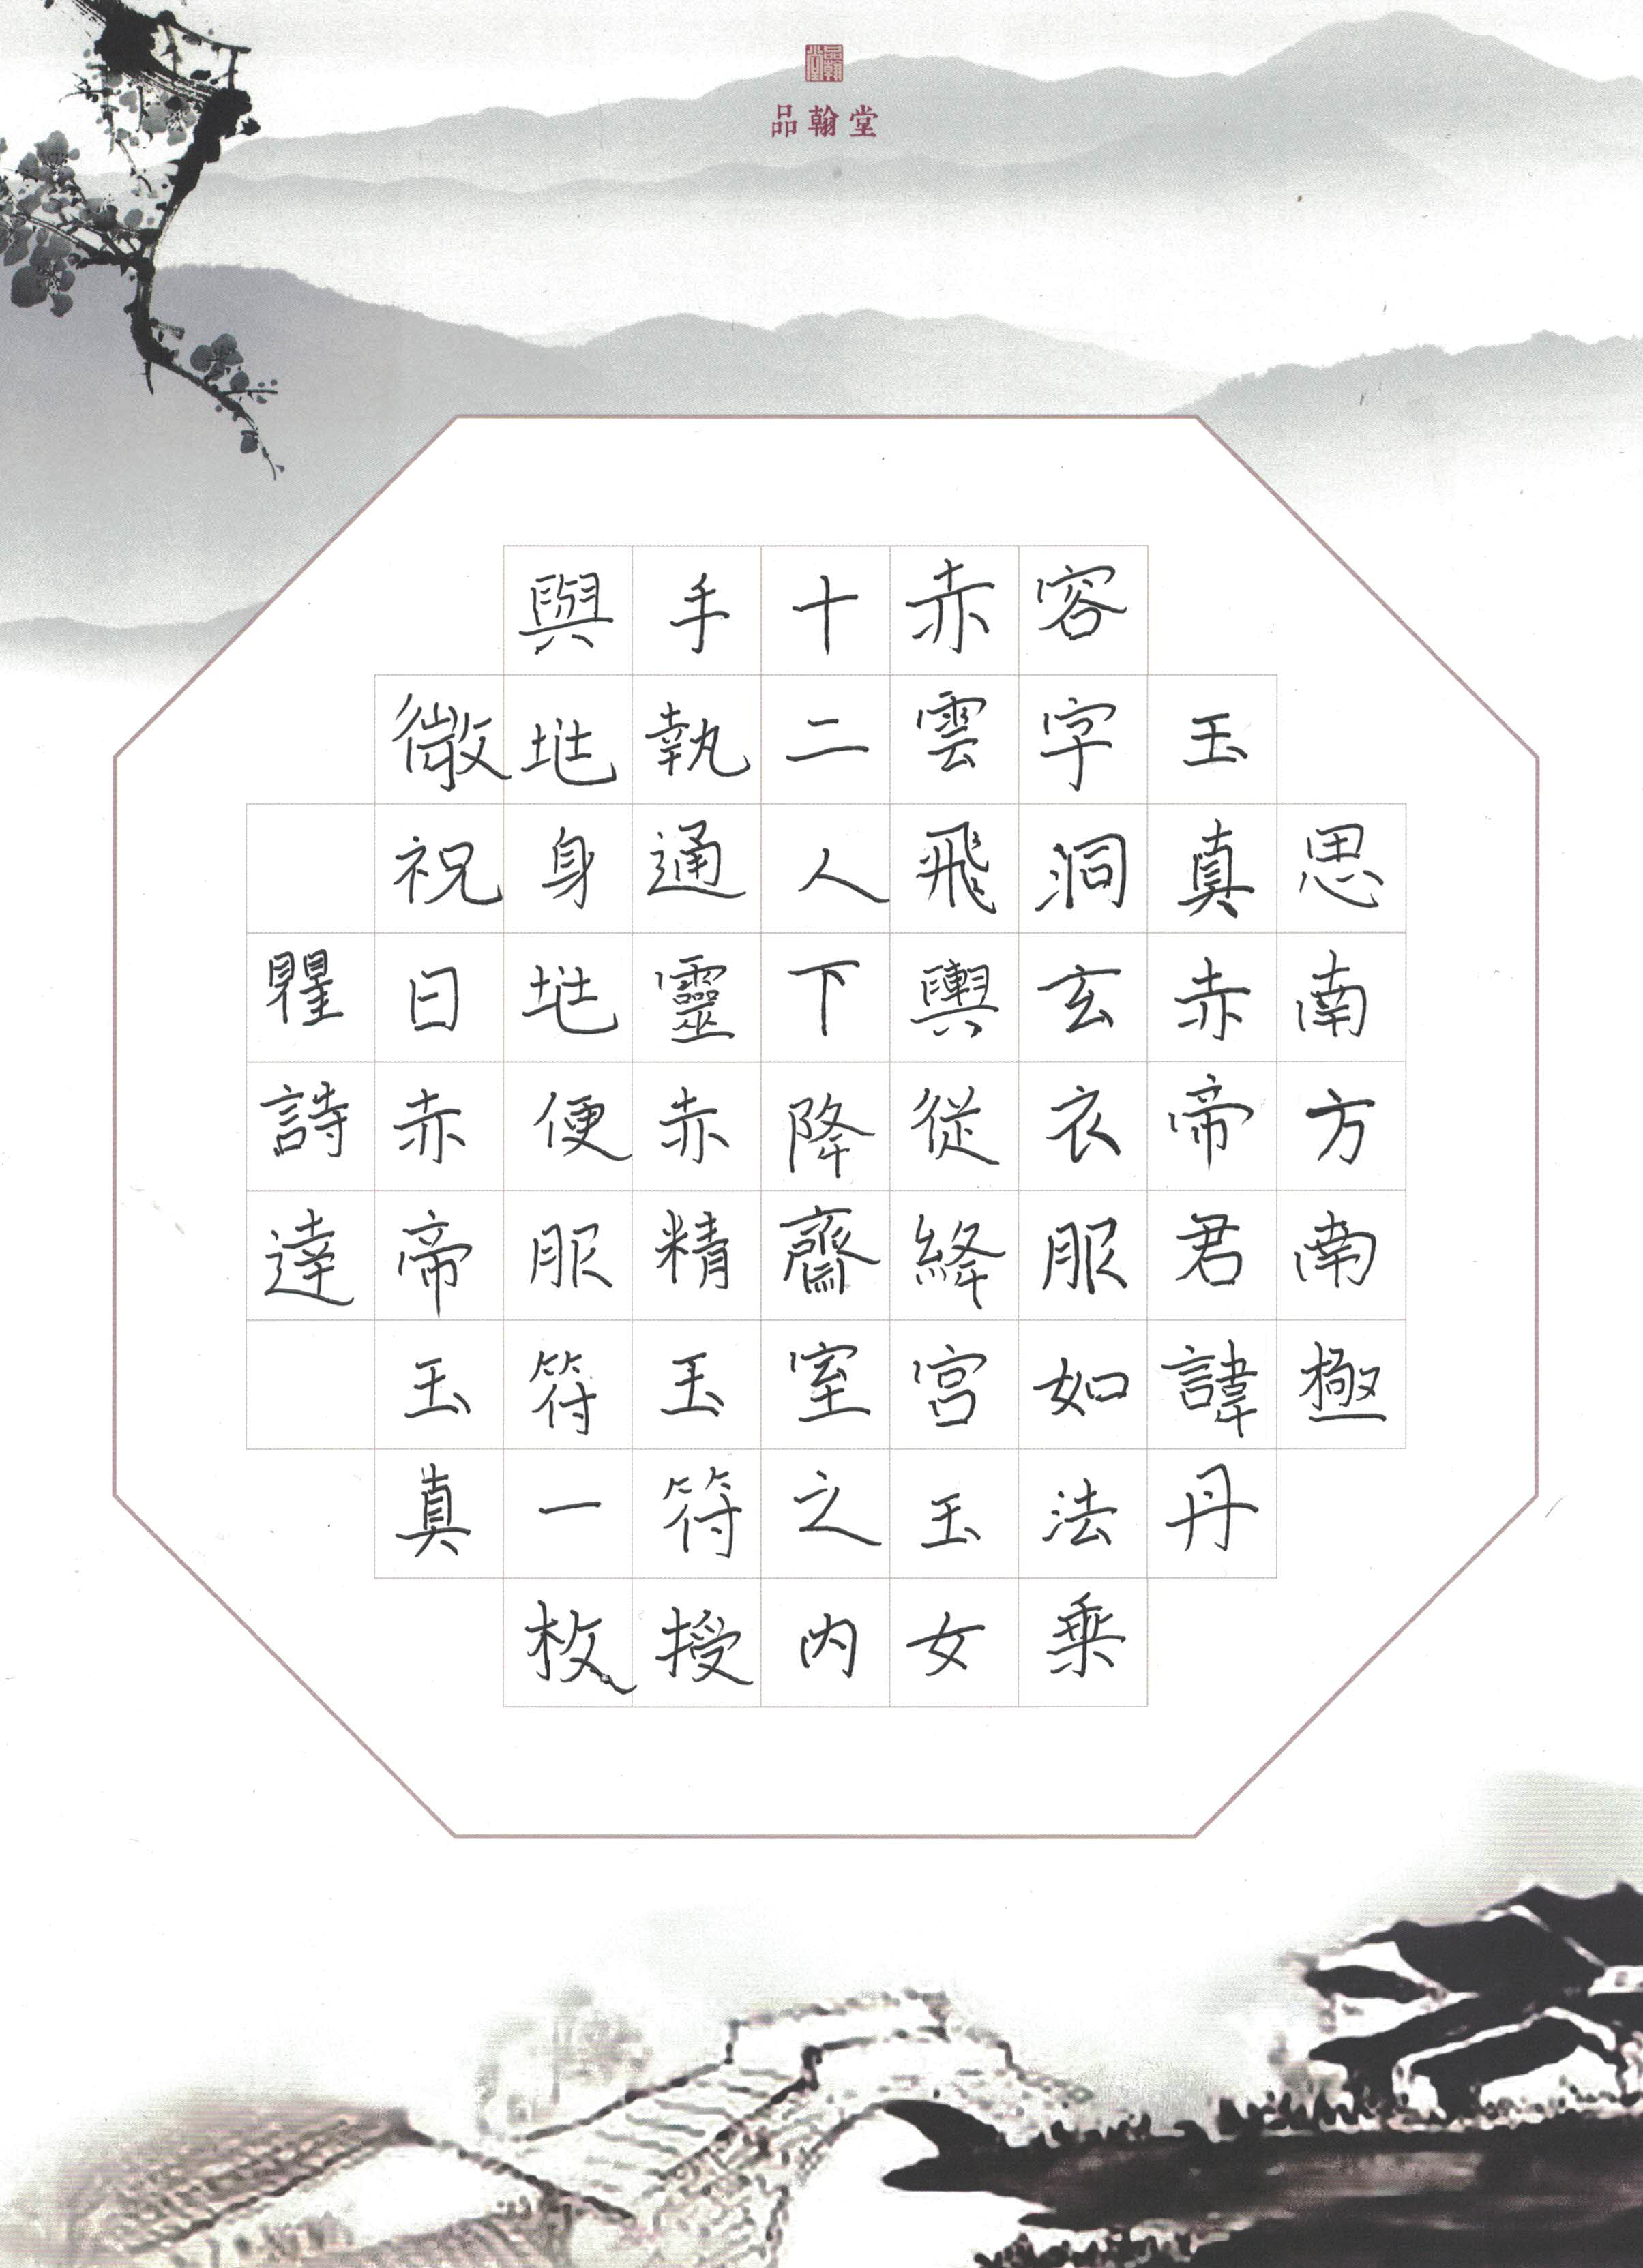 品翰堂
品翰堂
思南方南極
玉真赤帝君諱丹
容字洞玄衣服如法乗
赤雲飛輿從絳宮玉女
十二人下降齋室之内
手執通靈赤精玉符授
與身便服符一枚
微祝曰赤帝玉真
瞿詩達